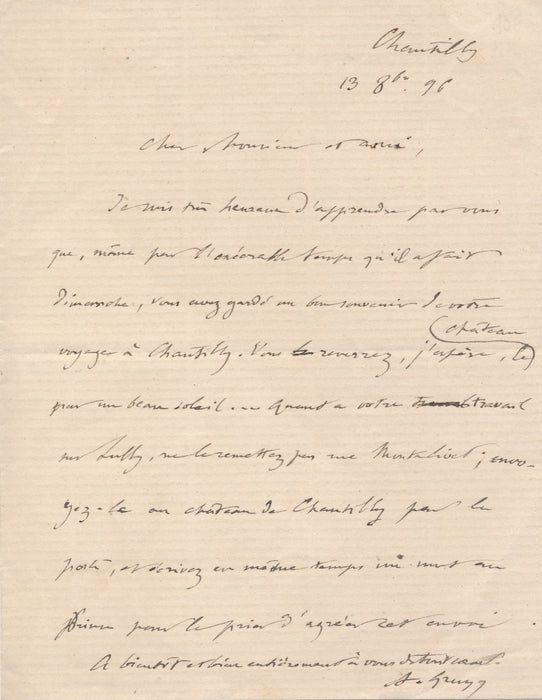 Chantilly
13 8bre 96
Cher Monsieur et ami,
Je suis très heureux d'apprendre par vous
que, même par l'exécrable temps qu'il a fait
Dimanche, vous avez gardé un bon souvenir de votre
voyage à Chantilly. Vous le reverrez, j'espère, le château
par un beau soleil. — Quant à votre travail
sur Lully, ne le remettez pas rue Montalivet ; envo-
yez-le au château de Chantilly par la
poste, et écrivez en même temps un mot au
Prince pour le prier d'agréer cet envoi.
A bientôt et bien entièrement à vous de tout cœur.
A. Gruyer